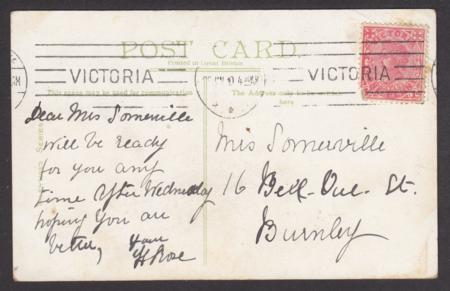 POST CARD.
Printed in Great Britain
VICTORIA
VICTORIA
VICTORIA
This space may be used for communication
The Address only to be written
here
Dear Mrs Somerville
Will be ready
for you any
time after Wednesday
hoping you are
better,
H Rose
Mrs Somerville
16 St.
Burnley